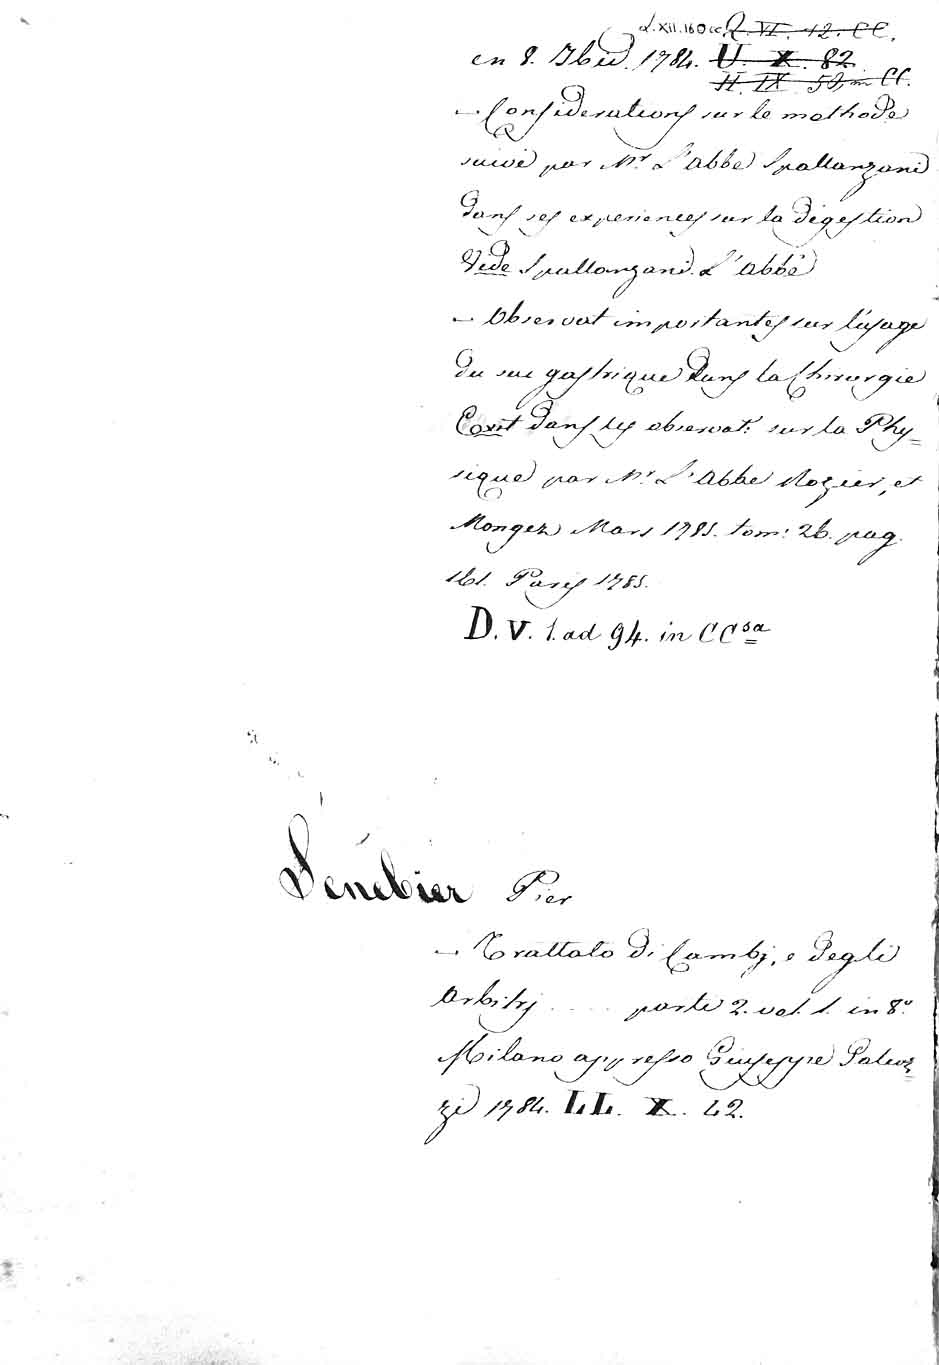 L.XII.160 cc. R. VI. 12. CC.
en 8. Ibid. 1784. U. X. 82
H. IX 50, in CC.
— Considerations sur le mathode
suivi par Mr. L'Abbe Spallanzani
dans ses experiences sur la digestion
Vede Spallanzani. L'Abbé
— Observat importantes sur l'usage
du suc gastrique dans la Chirurgie
Exist dans les observat: sur la Phy=
sique par Mr. L'Abbe Rozier, et
Mongez Mars 1785. tom: 26. pag.
161. Paris 1785.
D. V. 1. ad 94. in CCsa
Senebier Pier
— Trattato di Cambj, e degli
Arbitrj .... parti 2. vol. 1. in 8o.
Milano appresso Giuseppe Galeaz=
zi 1784. LL. X. 42.